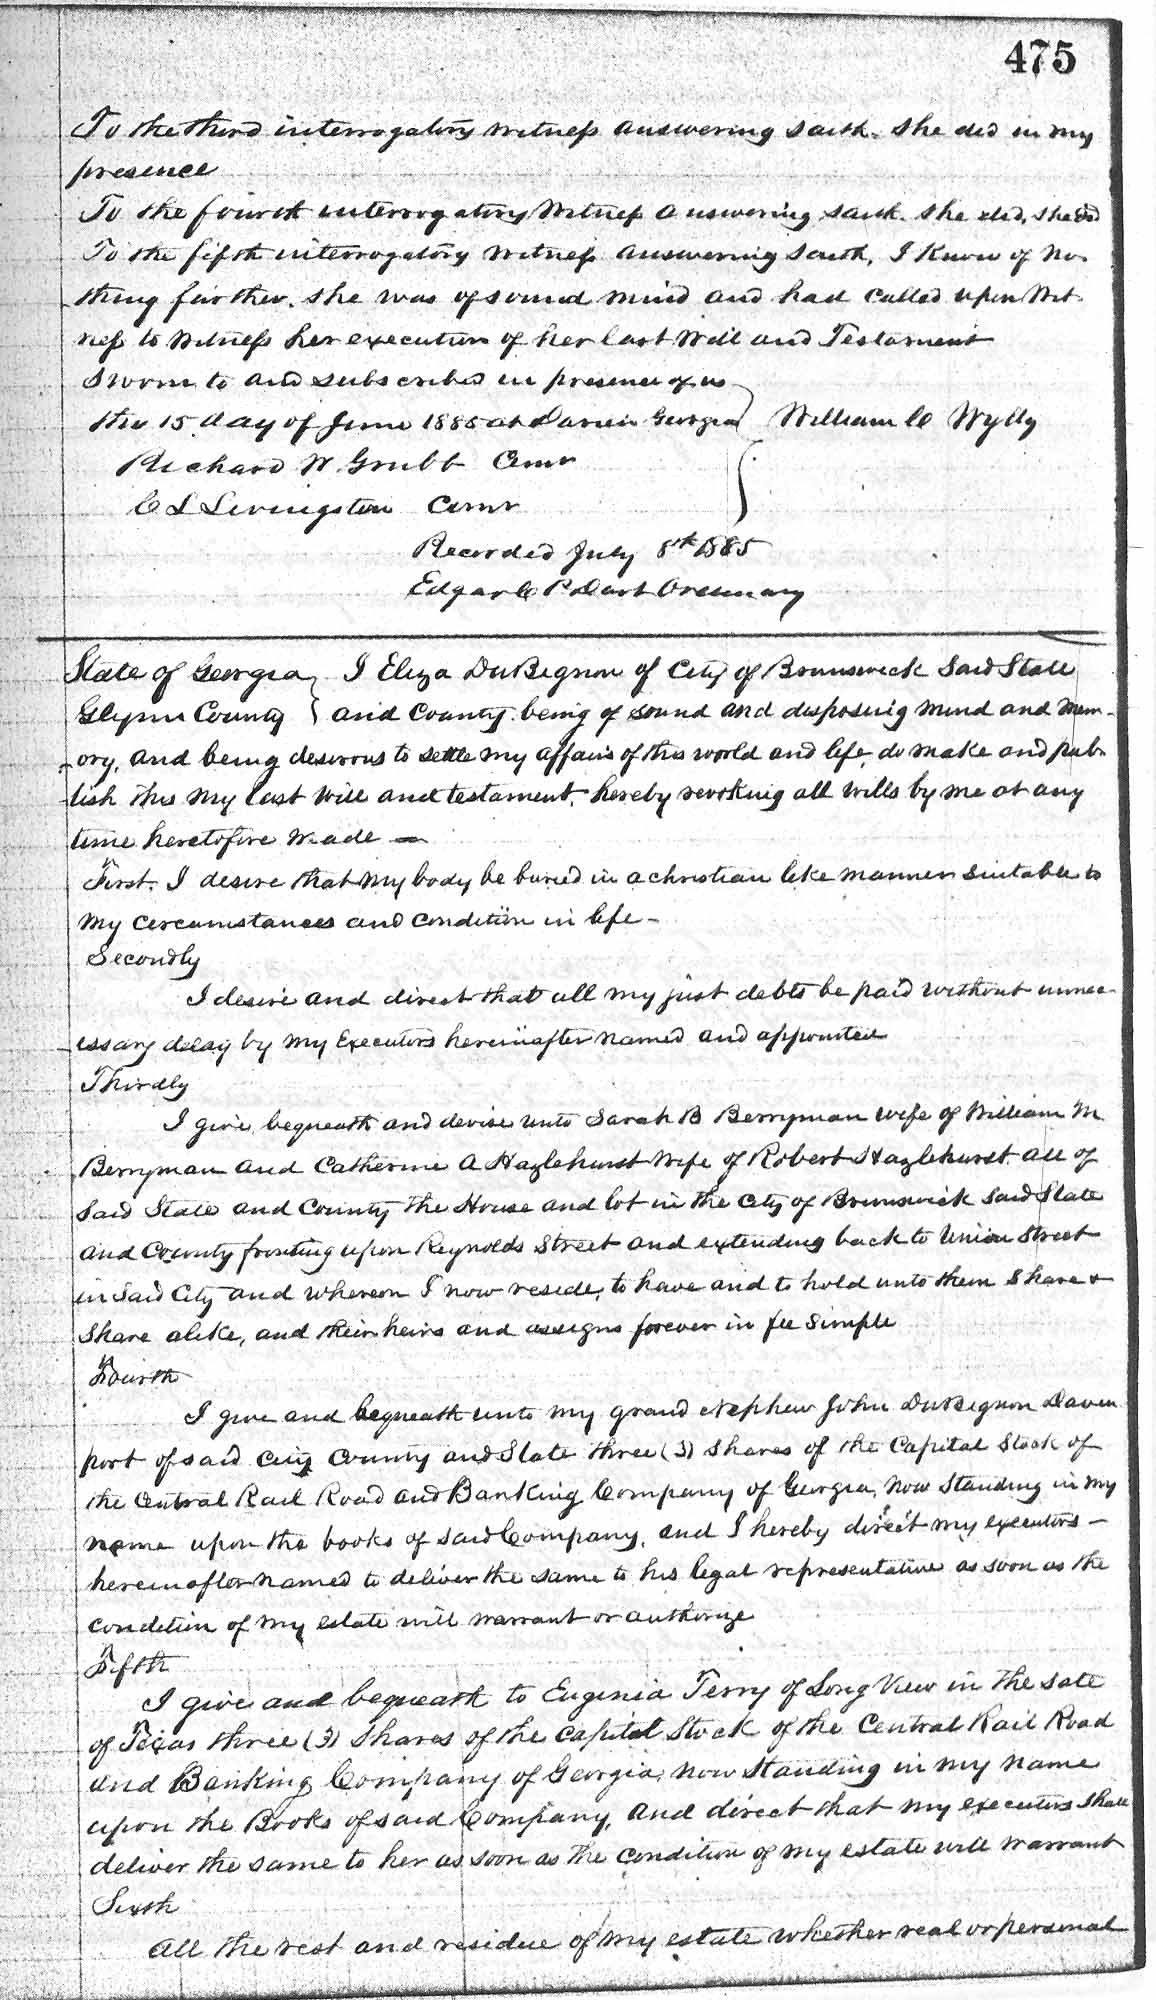 475
To the third interrogatory witness answering saith. She did in my
presence
To the fourth interrogatory witness answering saith. She did, she did
To the fifth interrogatory witness answering saith, I know of no-
thing further. She was of sound mind and had called upon Wit-
ness to witness her execution of her last Will and Testament
Sworn to and subscribed in presence of us
this 15 day of June 1885 at Darien Georgia } William C Wylly
Richard W. Grubb Comr
C L Livingston Comr
Recorded July 8th 1885
Edgar C P Dart Ordinary
State of Georgia } I Eliza DuBignon of City of Brunswick Said State
Glynn County } and County being of sound and disposing mind and mem-
ory, and being desirous to settle my affairs of this world and life, do make and pub-
lish this my last will and testament, hereby revoking all wills by me at any
time heretofore made —
First. I desire that my body be buried in a christian like manner suitable to
my circumstances and condition in life -
Secondly
I desire and direct that all my just debts be paid without unnec-
essary delay by my Executors hereinafter named and appointed
Thirdly
I give, bequeath and devise unto Sarah B Berryman wife of William M
Berryman and Catherine A Hazlehurst wife of Robert Hazlehurst all of
Said State and County the House and lot in the City of Brunswick Said State
and County fronting upon Reynolds Street and extending back to Union Street
in Said City and whereon I now reside, to have and to hold unto them Share &
Share alike, and their heirs and assigns forever in fee simple
Fourth
I give and bequeath unto my grand Nephew John DuBignon Daven
port of said City County and State three (3) shares of the Capital Stock of
the Central Rail Road and Banking Company of Georgia, now standing in my
name upon the books of said Company, and I hereby direct my executors -
hereinafter named to deliver the same to his legal representative as soon as the
condition of my estate will warrant or authorize
Fifth
I give and bequeath to Euginia Terry of Long View in the sate
of Texas three (3) shares of the capital Stock of the Central Rail Road
and Banking Company of Georgia, now standing in my name
upon the Books of said Company, and direct that my executors shall
deliver the same to her as soon as the condition of my estate will warrant
Sixth
All the rest and residue of my estate whether real or personal